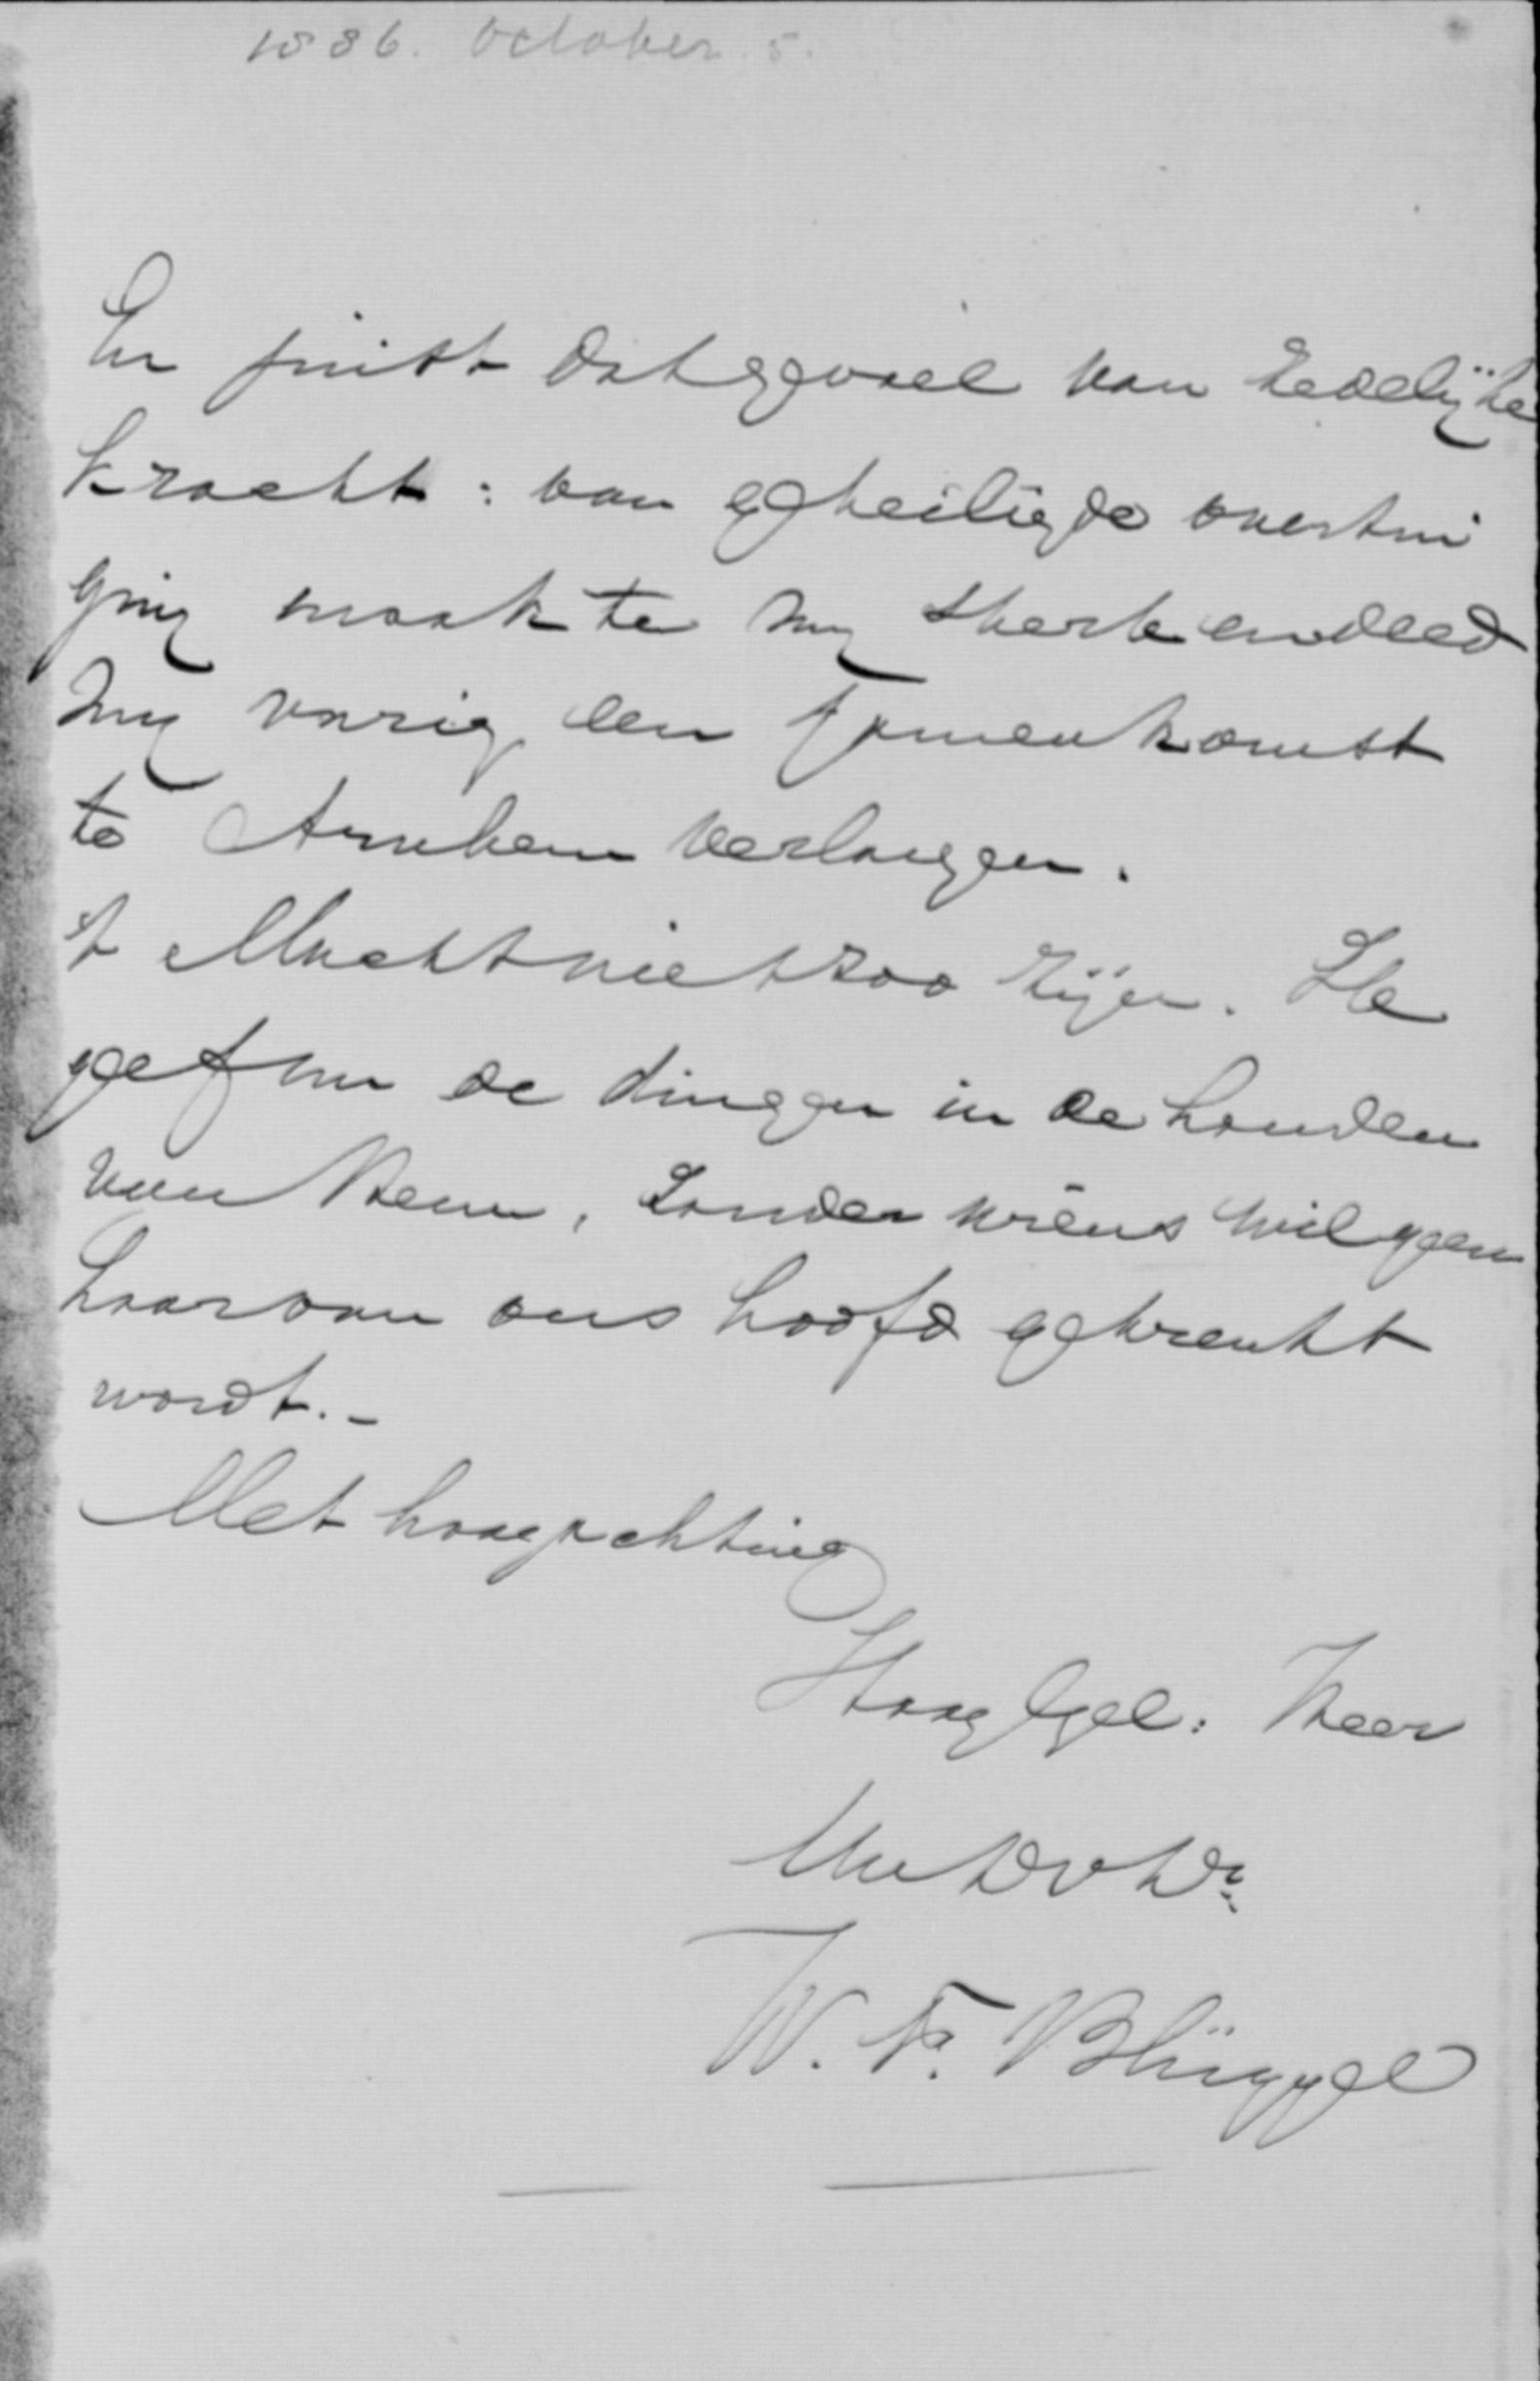 1886. October 5.
En juist dat gevoel van zedelijke
kracht: van geheiligde overtui
ging maakte my sterk en deed
my vurig een samenkomst
te Arnhem verlangen.
't Mocht niet zoo zijn. Ik
geef nu de dingen in de handen
van Hem, zonder wiens wil geen
haar van ons hoofd gekrenkt
wordt. -
Met hoogachting
Hoog Gel. Heer
Uw Dv Dr
W. F.